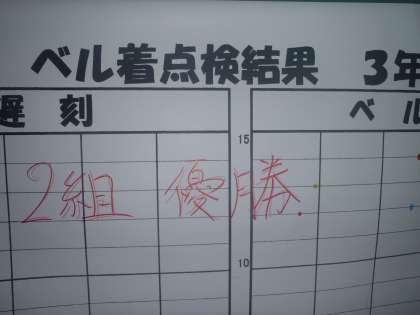 ベル着点検結果 3年
遅刻 ベル
15
2組 優勝
10